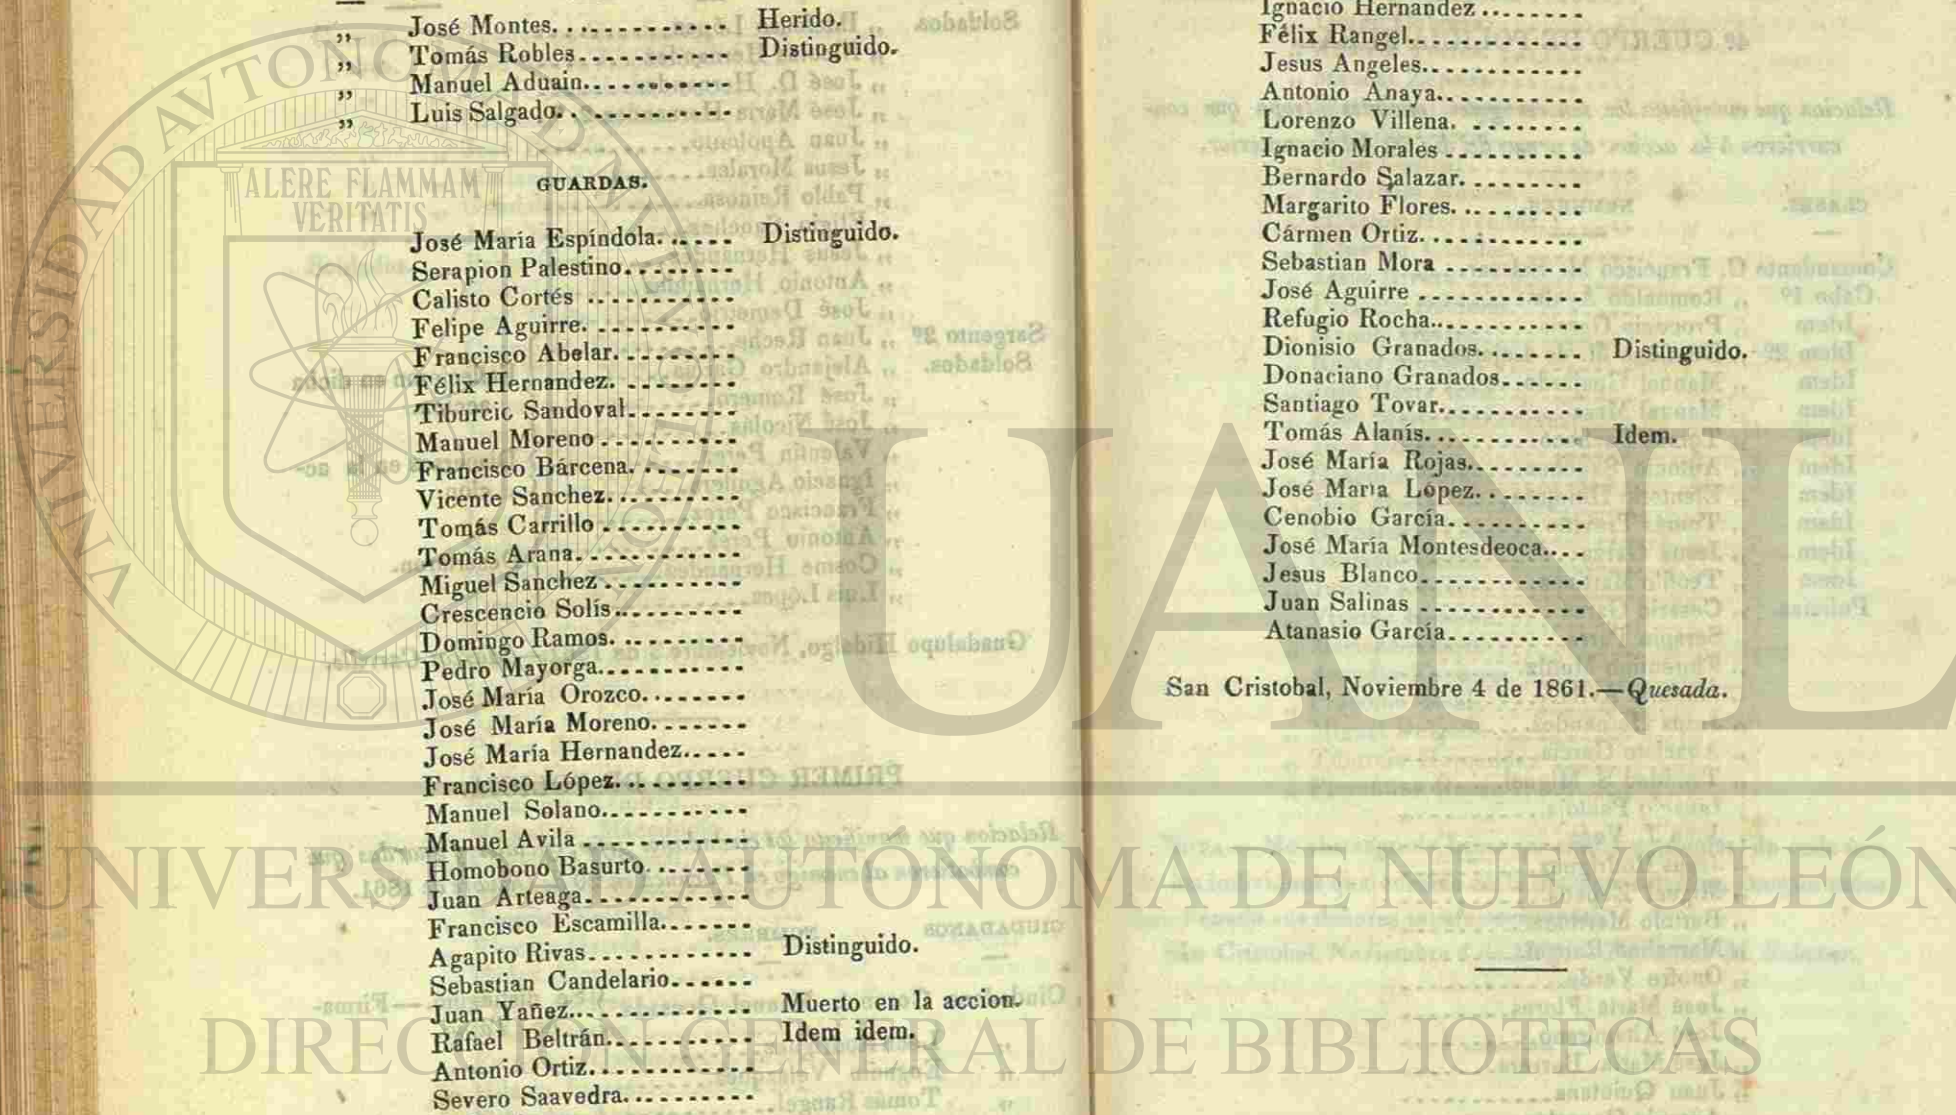 „ José Montes. . . . . . . . . . . . . Herido.
„ Tomás Robles. . . . . . . . . . . Distinguido.
„ Manuel Aduain. . . . . . . . . . .
„ Luis Salgado. . . . . . . . . . . .
GUARDAS.
José María Espíndola. . . . . . Distinguido.
Serapion Palestino. . . . . . . .
Calisto Cortés . . . . . . . . . . .
Felipe Aguirre. . . . . . . . . . .
Francisco Abelar. . . . . . . . .
Félix Hernandez. . . . . . . . .
Tiburcio Sandoval. . . . . . . .
Manuel Moreno . . . . . . . . . .
Francisco Bárcena. . . . . . . .
Vicente Sanchez. . . . . . . . . .
Tomás Carrillo . . . . . . . . . .
Tomás Arana. . . . . . . . . . . .
Miguel Sanchez . . . . . . . . . .
Crescencio Solís. . . . . . . . . .
Domingo Ramos. . . . . . . . . .
Pedro Mayorga. . . . . . . . . . .
José María Orozco. . . . . . . .
José María Moreno. . . . . . .
José María Hernandez. . . . .
Francisco López. . . . . . . . . .
Manuel Solano. . . . . . . . . . .
Manuel Avila . . . . . . . . . . . .
Homobono Basurto. . . . . . . .
Juan Arteaga. . . . . . . . . . . .
Francisco Escamilla. . . . . . .
Agapito Rivas. . . . . . . . . . . . Distinguido.
Sebastian Candelario. . . . . .
Juan Yañez. . . . . . . . . . . . . . Muerto en la accion.
Rafael Beltrán. . . . . . . . . . . Idem idem.
Antonio Ortiz. . . . . . . . . . . .
Severo Saavedra. . . . . . . . . .
Ignacio Hernandez . . . . . . . .
Félix Rangel. . . . . . . . . . . . .
Jesus Angeles. . . . . . . . . . . .
Antonio Anaya. . . . . . . . . . .
Lorenzo Villena. . . . . . . . .
Ignacio Morales . . . . . . . . . .
Bernardo Salazar. . . . . . . . .
Margarito Flores. . . . . . . . . .
Cármen Ortiz. . . . . . . . . . . .
Sebastian Mora . . . . . . . . . .
José Aguirre . . . . . . . . . . . .
Refugio Rocha. . . . . . . . . . .
Dionisio Granados. . . . . . . . Distinguido.
Donaciano Granados. . . . . .
Santiago Tovar. . . . . . . . . . .
Tomás Alanís. . . . . . . . . . . . Idem.
José María Rojas. . . . . . . . .
José María López. . . . . . . .
Cenobio García. . . . . . . . . .
José María Montesdeoca. . . .
Jesus Blanco. . . . . . . . . . . .
Juan Salinas . . . . . . . . . . . .
Atanasio García. . . . . . . . . .
San Cristobal, Noviembre 4 de 1861.—Quesada.
UNIVERSIDAD AUTONOMA DE NUEVO LEON
ALERE FLAMMAM
VERITATIS
UANL
UNIVERSIDAD AUTÓNOMA DE NUEVO LEÓN
DIRECCIÓN GENERAL DE BIBLIOTECAS